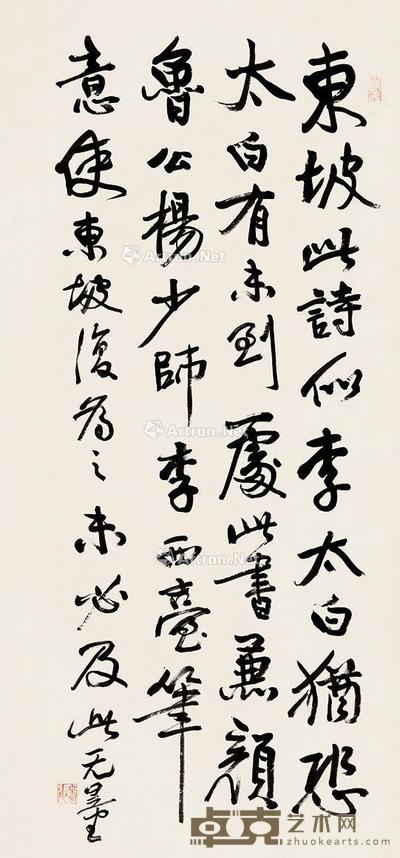 東坡此詩似李太白猶恐
太白有未到處此書兼顏
魯公楊少師李西臺筆
意使東坡復為之未必及此无量
Artron.Net
Artron.Net
Artron.Net
Artron.Net
卓克艺术网
zhuokearts.com